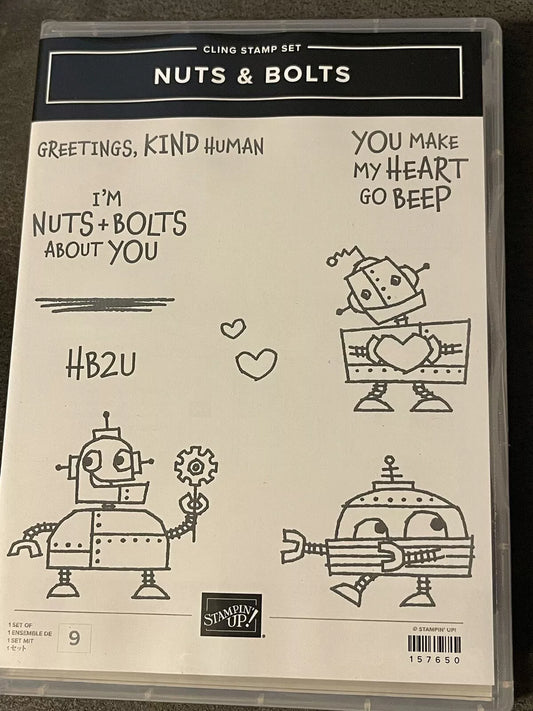 CLING STAMP SET
NUTS & BOLTS
GREETINGS, KIND HUMAN
YOU MAKE
MY HEART
GO BEEP
I'M
NUTS + BOLTS
ABOUT YOU
HB2U
STAMPIN'
UP!
®
1 SET OF
1 ENSEMBLE DE
1 SET MIT
1セット
9
© STAMPIN' UP!
157650